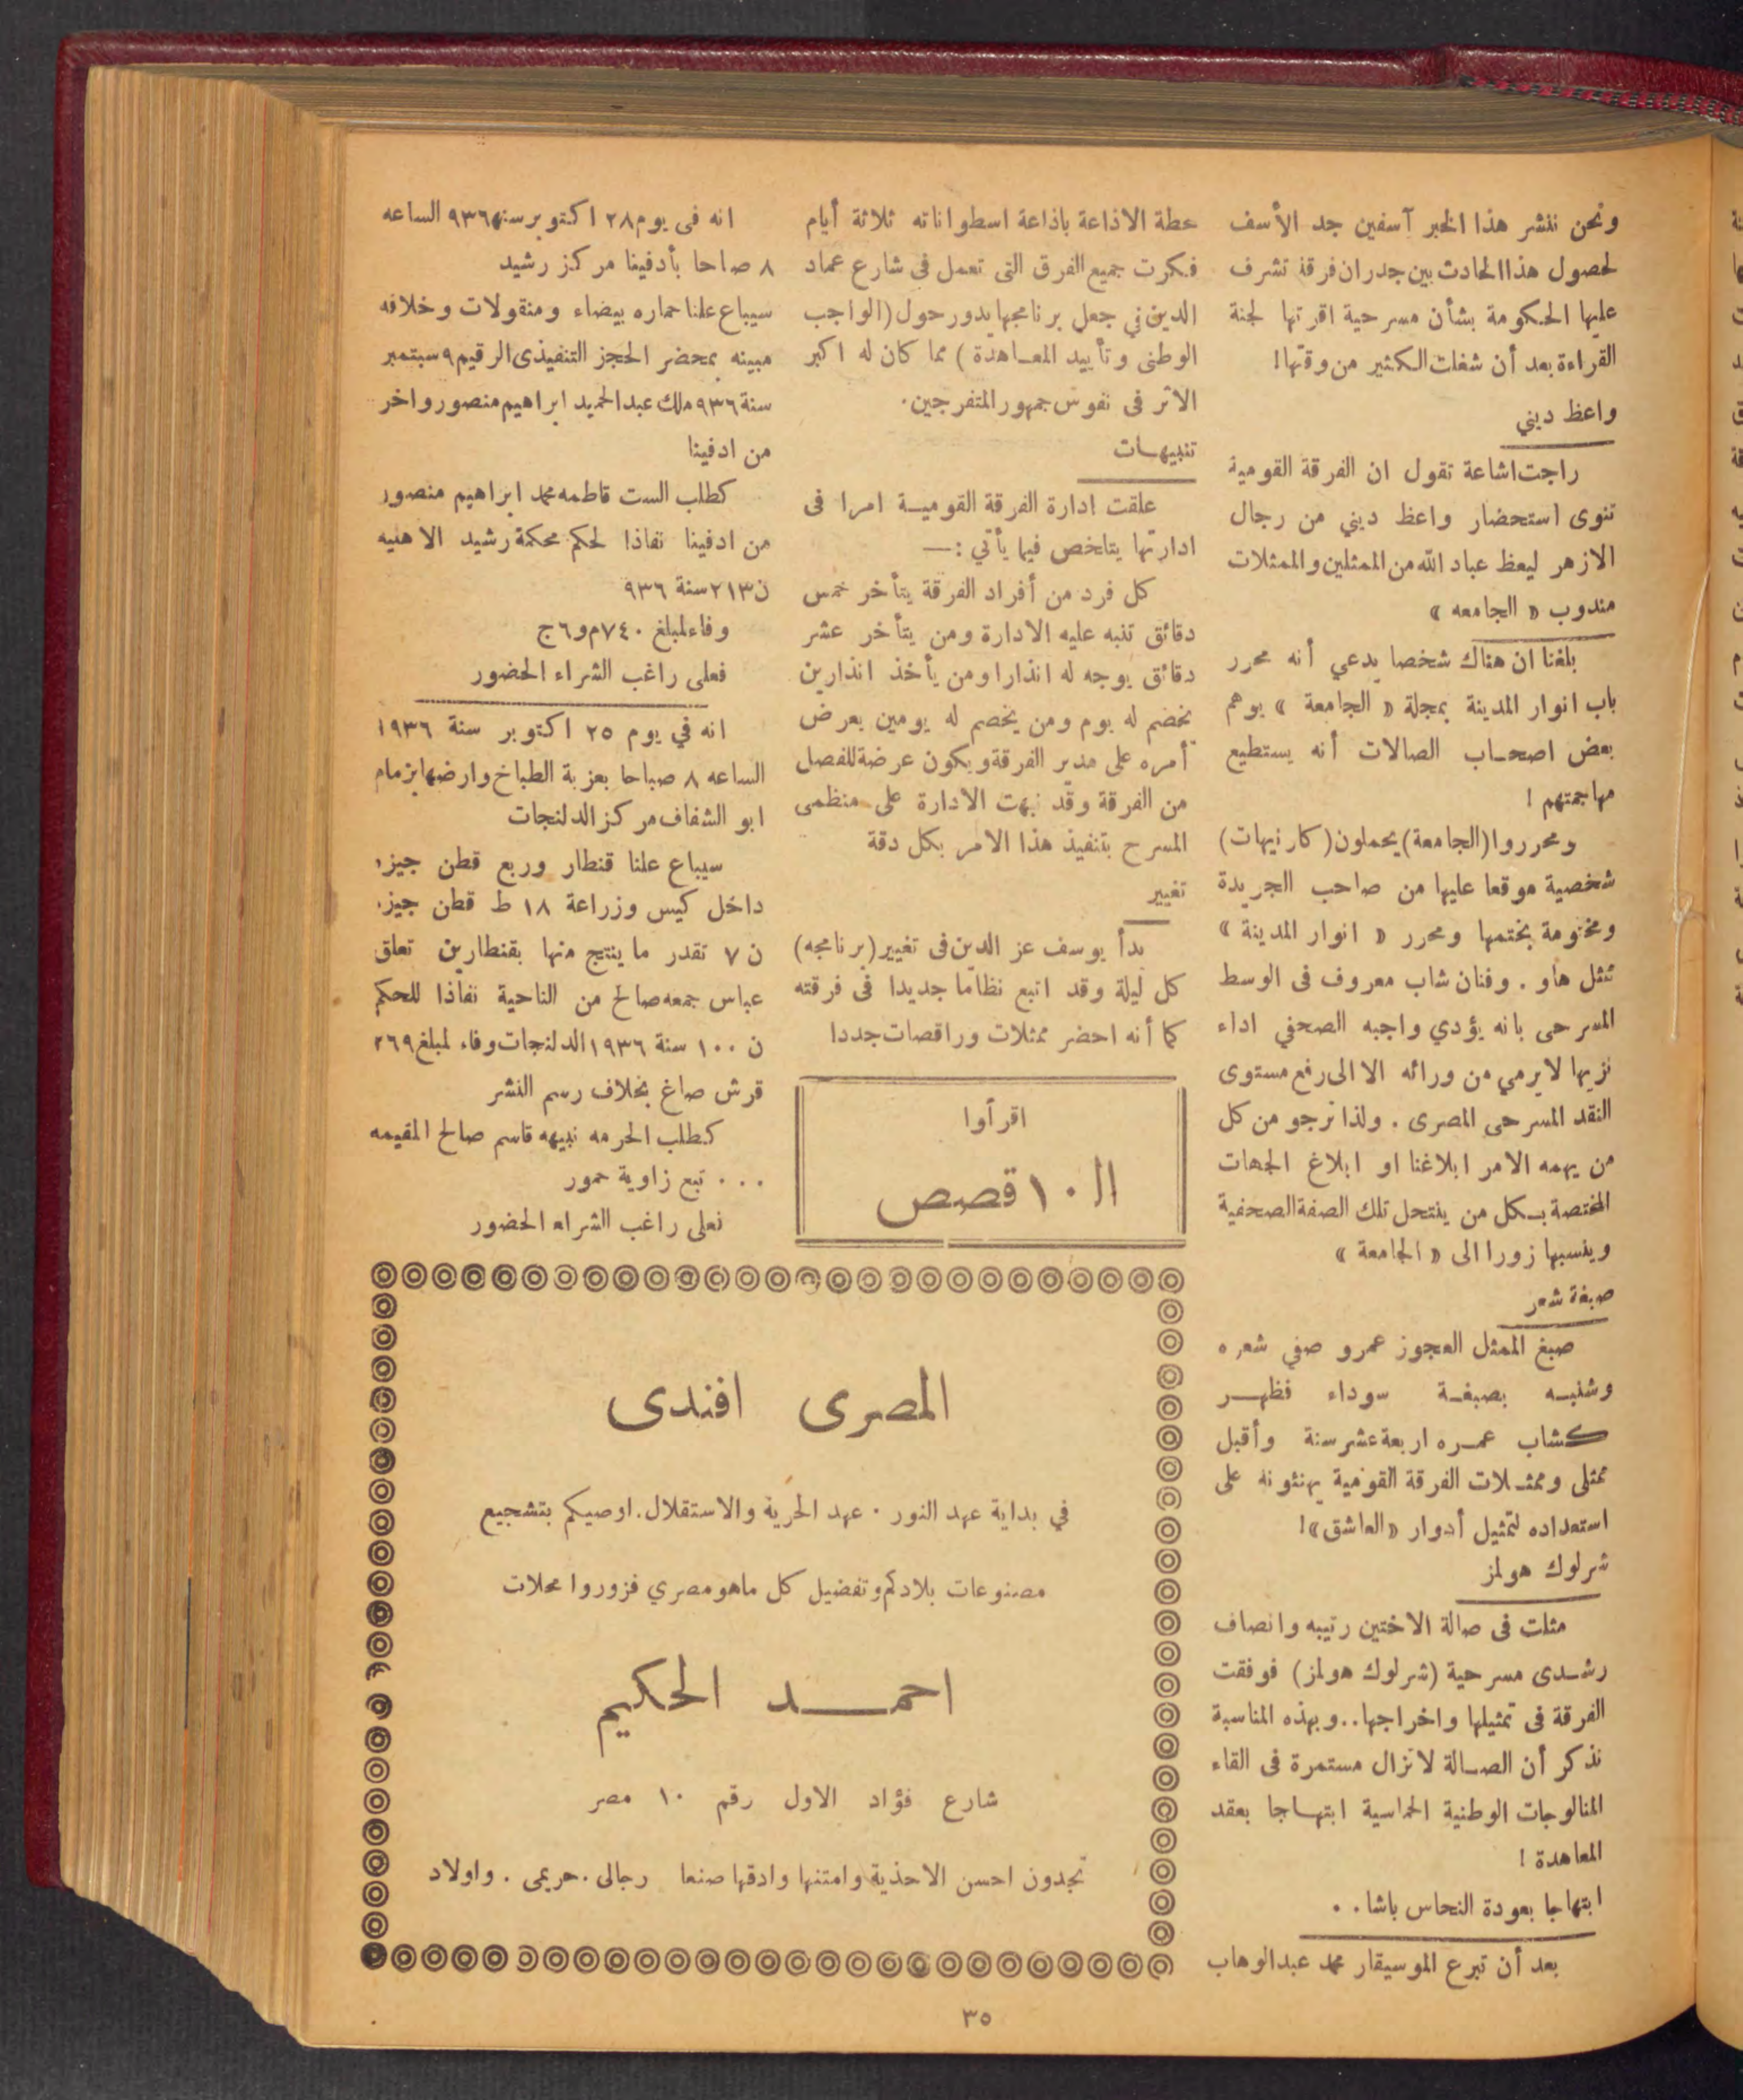 ونحن ننشر هذا الخبر آسفين جد الأسف
لحصول هذا الحادث بين جدران فرقة تشرف
عليها الحكومة بشأن مسرحية اقرتها لجنة
القراءة بعد أن شغلت الكثير من وقتها!
واعظ ديني
راجت اشاعة تقول ان الفرقة القومية
تنوى استحضار واعظ ديني من رجال
الازهر ليعظ عباد الله من الممثلين والممثلات
مندوب « الجامعه »
بلغنا ان هناك شخصا يدعي أنه محرر
باب انوار المدينة بمجلة « الجامعة » يوهم
بعض اصحاب الصالات أنه يستطيع
مهاجمتهم !
ومحرروا (الجامعة) يحملون (كارنيهات)
شخصية موقعا عليها من صاحب الجريدة
ومختومة بختمها ومحرر « انوار المدينة »
تثل هاو . وفنان شاب معروف فى الوسط
المسرحى بانه يؤدي واجبه الصحفي اداء
نزيها لا يرمي من ورائه الا الى رفع مستوى
النقد المسرحى المصرى . ولذا نرجو من كل
من يهمه الامر ابلاغنا او ابلاغ الجهات
المختصة بكل من ينتحل تلك الصفة الصحفية
وينسبها زورا الى « الجامعة »
صبغة شعر
صبغ الممثل العجوز عمرو صفي شعره
وشنبه بصبغة سوداء فظهر
كشاب عمره اربعة عشر سنة وأقبل
ممثلى وممثلات الفرقة القومية يهنئونه على
استعداده لتمثيل أدوار «العاشق»!
شرلوك هولمز
مثلت فى صالة الاختين رتيبه وانصاف
رشدى مسرحية (شرلوك هولمز) فوفقت
الفرقة فى تمثيلها واخراجها.. وبهذه المناسبة
نذكر أن الصالة لا تزال مستمرة فى القاء
المنالوجات الوطنية الحماسية ابتهاجا بعقد
المعاهدة !
ابتهاجا بعودة النحاس باشا . .
بعد أن تبرع الموسيقار محمد عبدالوهاب
محطة الاذاعة باذاعة اسطواناته ثلاثة أيام
فكرت جميع الفرق التى تعمل فى شارع عماد
الدين في جعل برنامجها يدور حول (الواجب
الوطنى وتأييد المعاهدة ) مما كان له اكبر
الاثر فى نفوس جمهور المتفرجين.
تنبيهات
علقت ادارة الفرقة القومية امرا فى
ادارتها يتلخص فيما يأتي :—
كل فرد من أفراد الفرقة يتأخر خمس
دقائق تنبه عليه الادارة ومن يتأخر عشر
دقائق يوجه له انذارا ومن يأخذ انذارين
يخصم له يوم ومن يخصم له يومين يعرض
أمره على مدير الفرقة ويكون عرضة للفصل
من الفرقة وقد نبهت الادارة على منظمى
المسرح بتنفيذ هذا الامر بكل دقة
تغيير
بدأ يوسف عز الدين فى تغيير (برنامجه)
كل ليلة وقد اتبع نظاما جديدا فى فرقته
كما أنه احضر ممثلات وراقصات جددا
اقرأوا
ال ١٠ قصص
انه فى يوم ٢٨ اكتوبر سنة ٩٣٦ الساعه
٨ صاحا بأدفينا مركز رشيد
سيباع علنا حماره بيضاء ومنقولات وخلافه
مبينه بمحضر الحجز التنفيذى الرقيم ٩ سبتمبر
سنة ٩٣٦ ملك عبد الحميد ابراهيم منصور واخر
من ادفينا
كطلب الست فاطمه محمد ابراهيم منصور
من ادفينا نفاذا لحكم محكمة رشيد الاهليه
ن ٢١٣ سنة ٩٣٦
وفاء لمبلغ ٧٤٠م و٦ج
فعلى راغب الشراء الحضور
انه في يوم ٢٥ اكتوبر سنة ١٩٣٦
الساعه ٨ صباحا بعزبة الطباخ وارضها بزمام
ابو الشفاف مركز الدلنجات
سيباع علنا قنطار وربع قطن جيزه
داخل كيس وزراعة ١٨ ط قطن جيزه
ن ٧ تقدر ما ينتج منها بقنطارين تعلق
عباس جمعه صالح من الناحية نفاذا للحكم
ن ١٠٠ سنة ١٩٣٦ الدلنجات وفاء لمبلغ ٢٦٩
قرش صاغ بخلاف رسم النشر
كطلب الحرمه نبيهه قاسم صالح المقيمه
. . . تبع زاوية حمور
فعلى راغب الشراء الحضور
المصرى افندى
في بداية عهد النور . عهد الحرية والاستقلال. اوصيكم بتشجيع
مصنوعات بلادكم وتفضيل كل ماهو مصري فزوروا محلات
احمد الحكيم
شارع فؤاد الاول رقم ١٠ مصر
تجدون احسن الاحذية وامتنها وادقها صنعا رجالى . حريمى . واولاد
٣٥